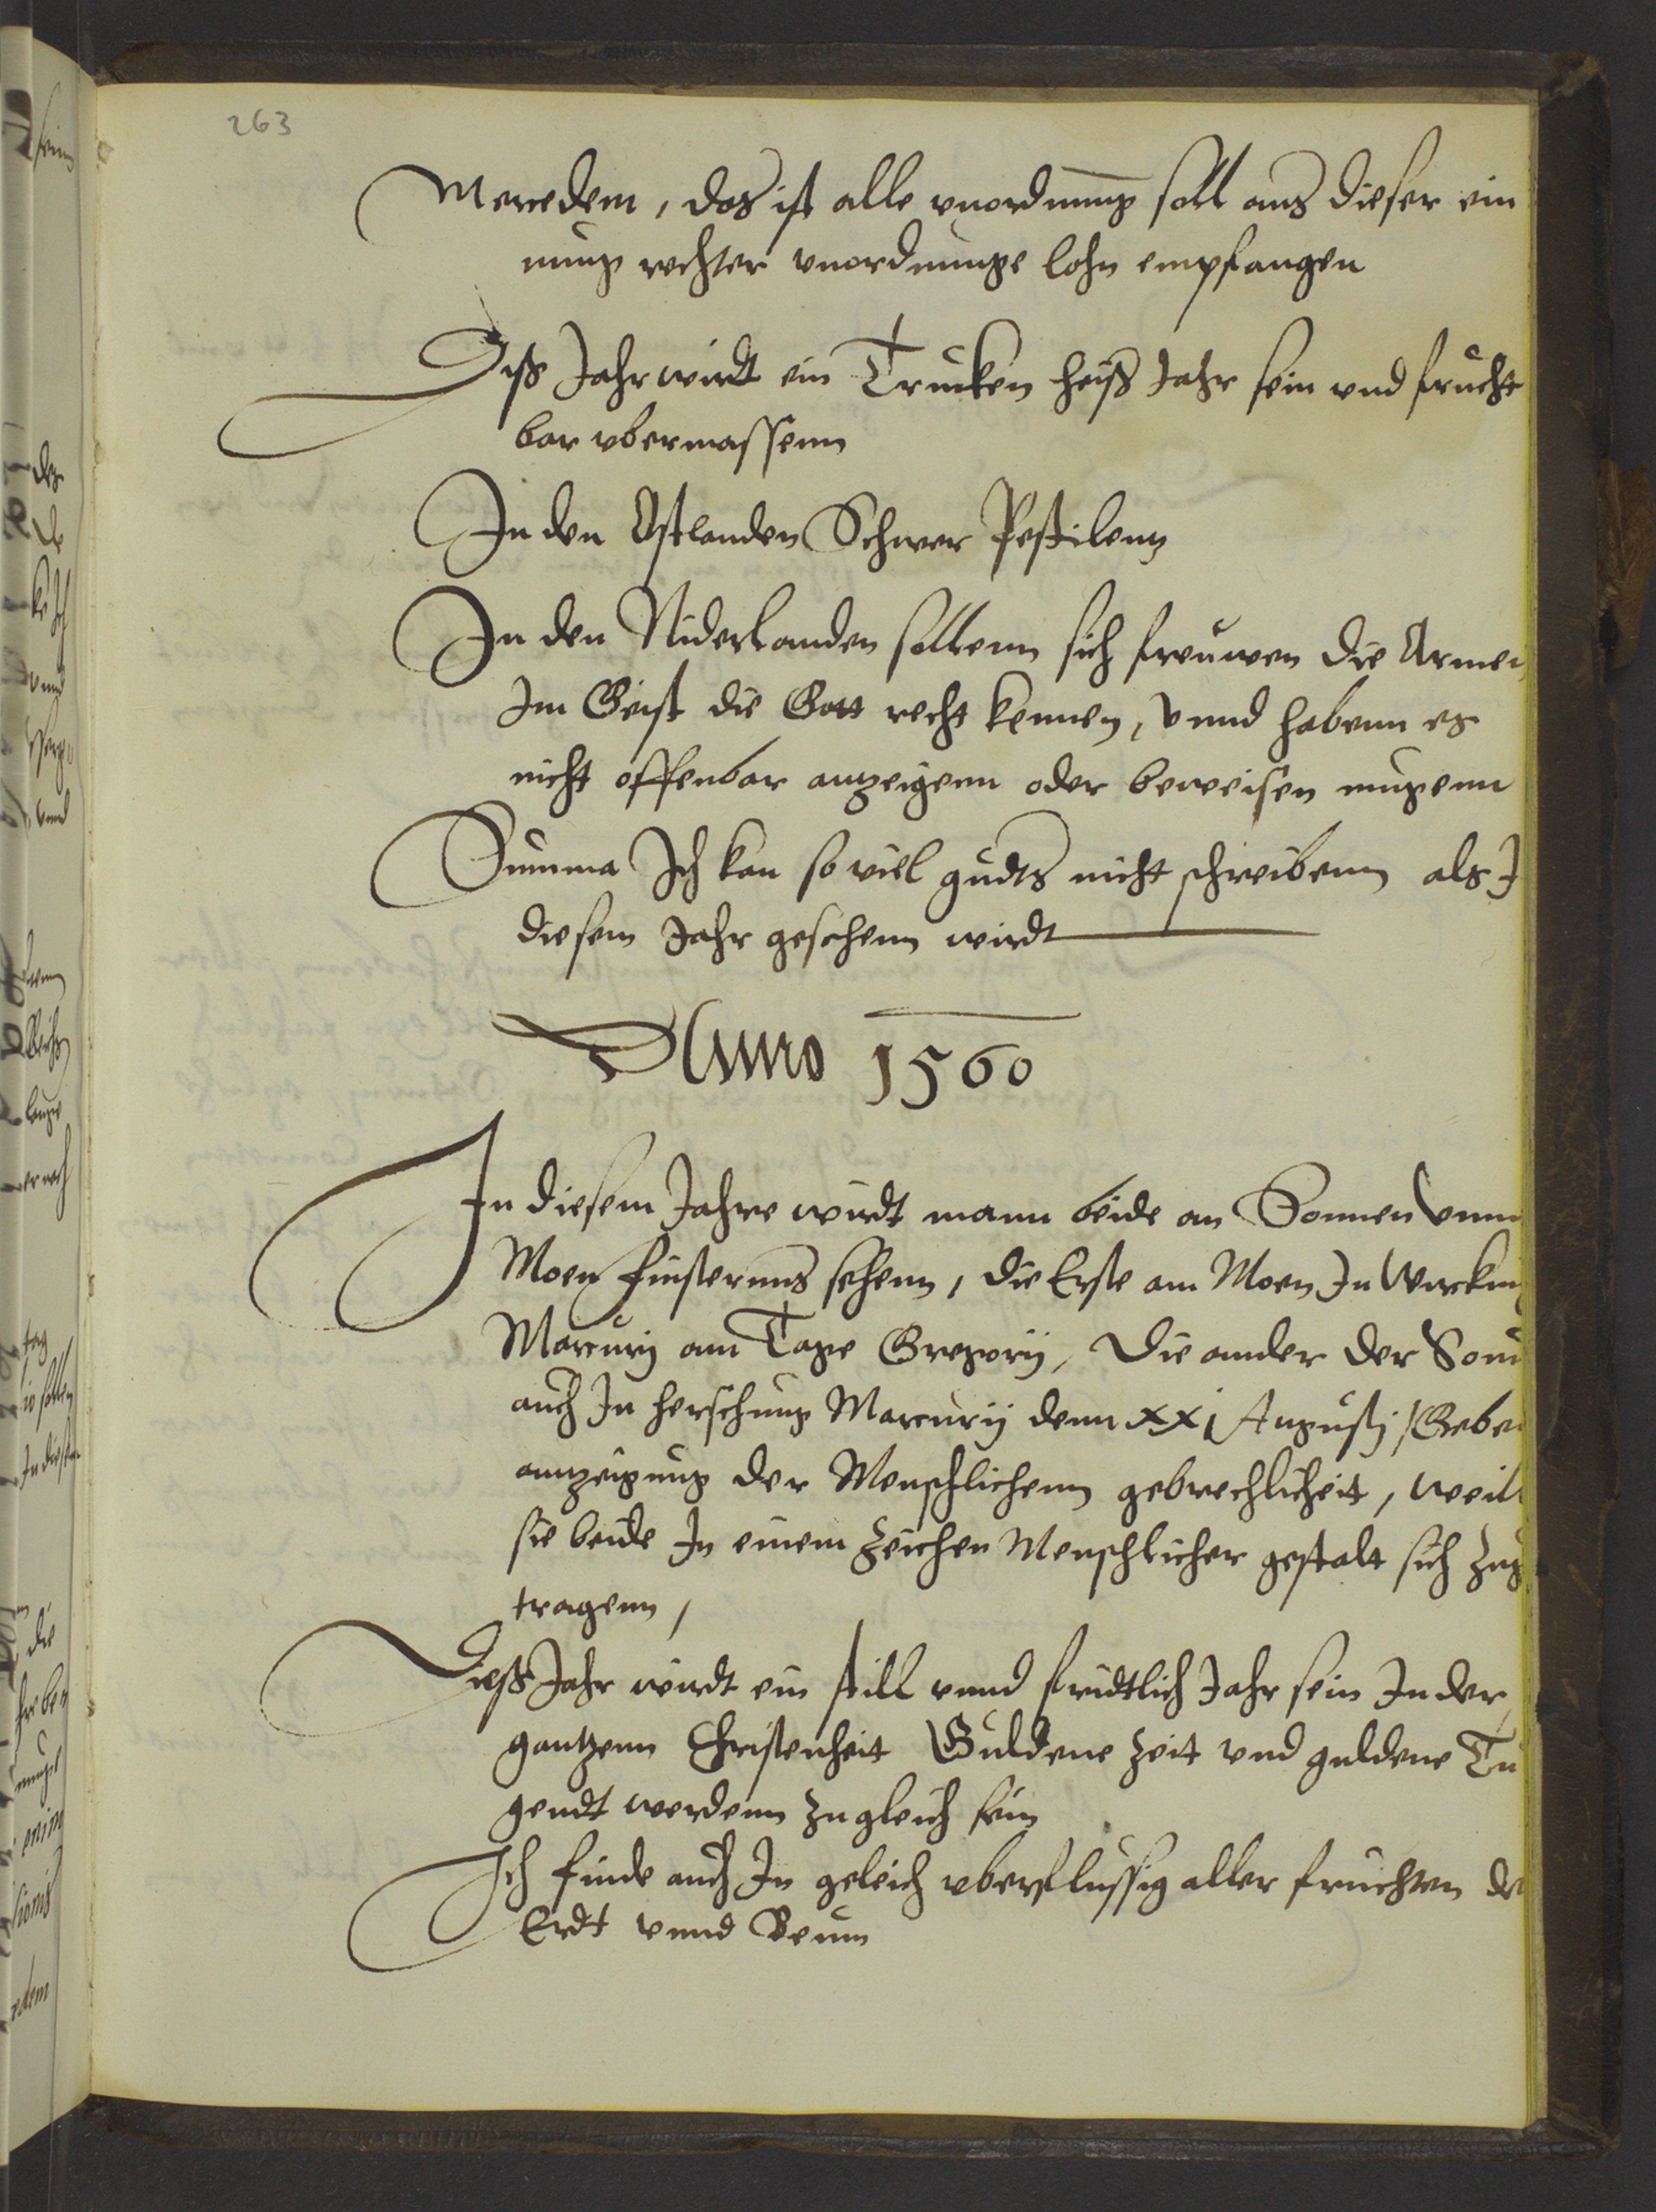 263
Mercedem, das ist alle vnordnung soll aus dieser ein
nung rechter vnordnunge lohn empfangen
Diß Jahr wirdt ein Trucken heiß Jahr sein vnd frucht
bar vbermassenn
In den Ostlanden Schwer Pestilentz
In den Niderlanden sollenn sich freuwen die Armen
Im Geist die Gott recht kennen, vnnd habenn es
nicht offenbar anzeigenn oder beweisen mugenn
Summa Ich kan so viel gudts nicht schreibenn als J
diesem Jahr geschenn wirdt
Anno 1560
In diesem Jahre wirdt mann beide an Sonnen vnnd
Moen finsternus sehenn, die Erste am Moen In Wirkung
Mercurij am Tage Gregorij, Die ander der Sonn
auch In herschung Mercurij denn xxi Augusti, Geben
anzeigung der Menschlichenn gebrechlicheit, weil
sie beide In einem Zeichen Menschlicher gestalt sich zug
tragenn,
Dieß Jahr wirdt ein still vnnd fridtlich Jahr sein In der
gantzenn Christenheit Guldene Zeit vnd guldene Tu
gendt werdenn zugleich sein
Ich finde auch In geleich vberflussig aller fruchten der
Erdt vnnd Beum